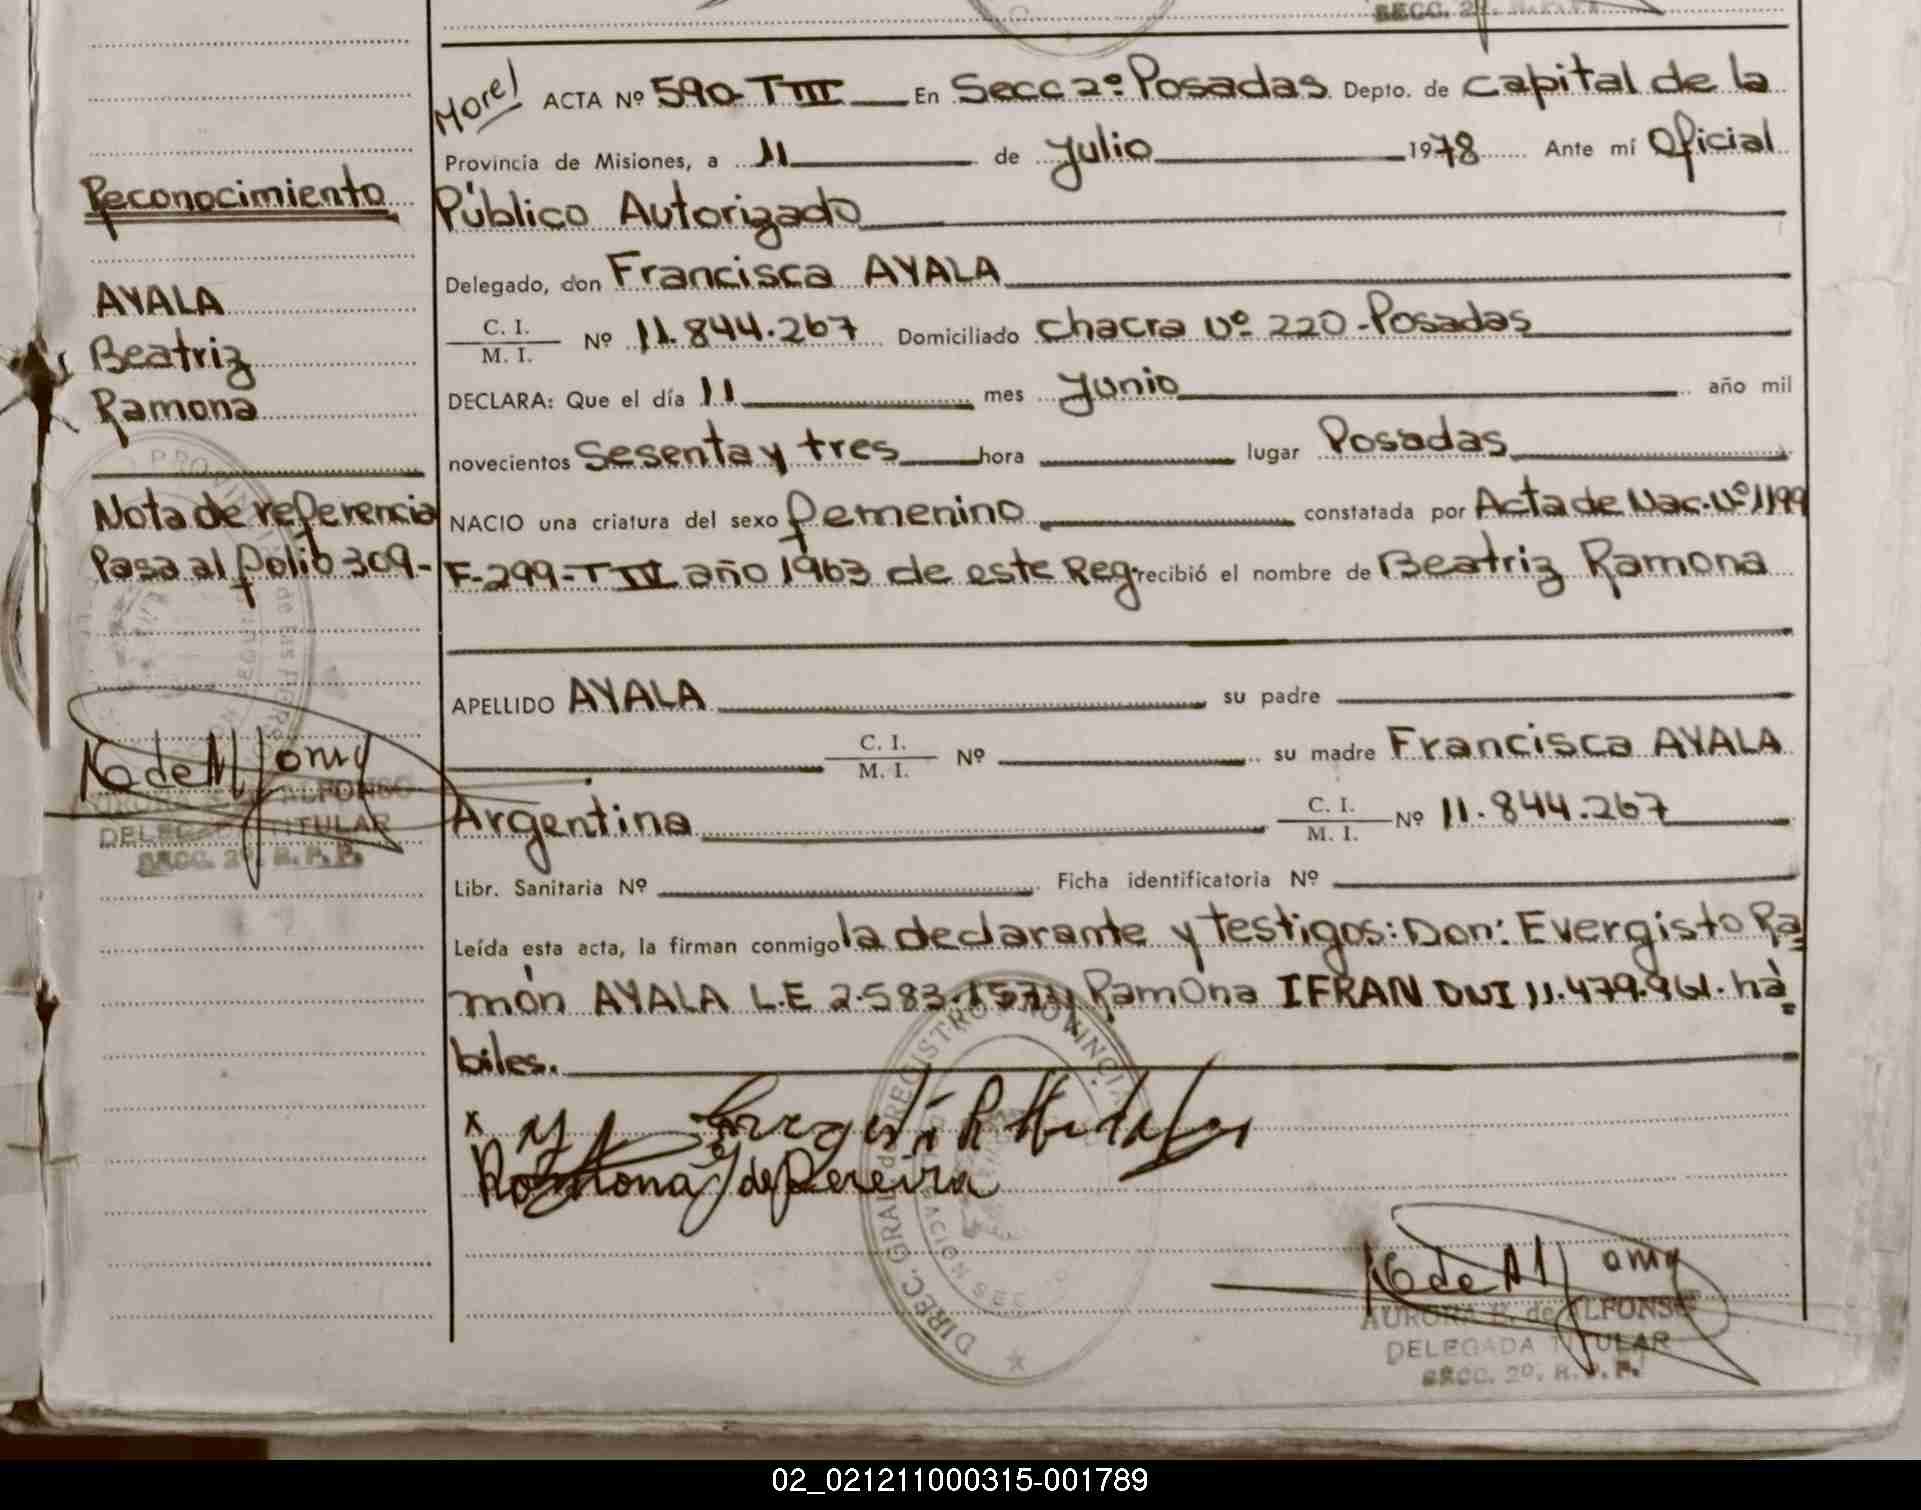 SECC. 2ª. R.P.P.
Morel ACTA Nº 590-T III En Secc 2º Posadas Depto. de Capital de la
Provincia de Misiones, a 11 de Julio 1978 Ante mí Oficial
Público Autorizado
Delegado, don Francisca AYALA
C. I.
M. I. Nº 11.844.267 Domiciliado chacra Nº 220-Posadas
DECLARA: Que el día 11 mes Junio año mil
novecientos Sesenta y tres hora lugar Posadas
NACIO una criatura del sexo femenino constatada por Acta de Nac. Nº 1199
F-299-T IV año 1963 de este Reg. recibió el nombre de Beatriz Ramona
APELLIDO AYALA su padre
C. I.
M. I. Nº su madre Francisca AYALA
Argentina C. I.
M. I. Nº 11.844.267
Libr. Sanitaria Nº Ficha identificatoria Nº
Leída esta acta, la firman conmigo la declarante y testigos: Don: Evergisto Ra=
món AYALA L.E 2.583.157 y Ramona IFRAN DNI 11.479.961. há=
biles.
x
Ramona de Pereira
DIREC. GRAL. de REGISTRO PROVINCIAL
AURORA de ALFONSO
DELEGADA TITULAR
SECC. 2º. R.P.P.
Reconocimiento
AYALA
Beatriz
Ramona
Nota de referencia
Pasa al folio 309-
ALFONSO
DELEGADA TITULAR
SECC. 2º. R.P.P.
02_021211000315-001789